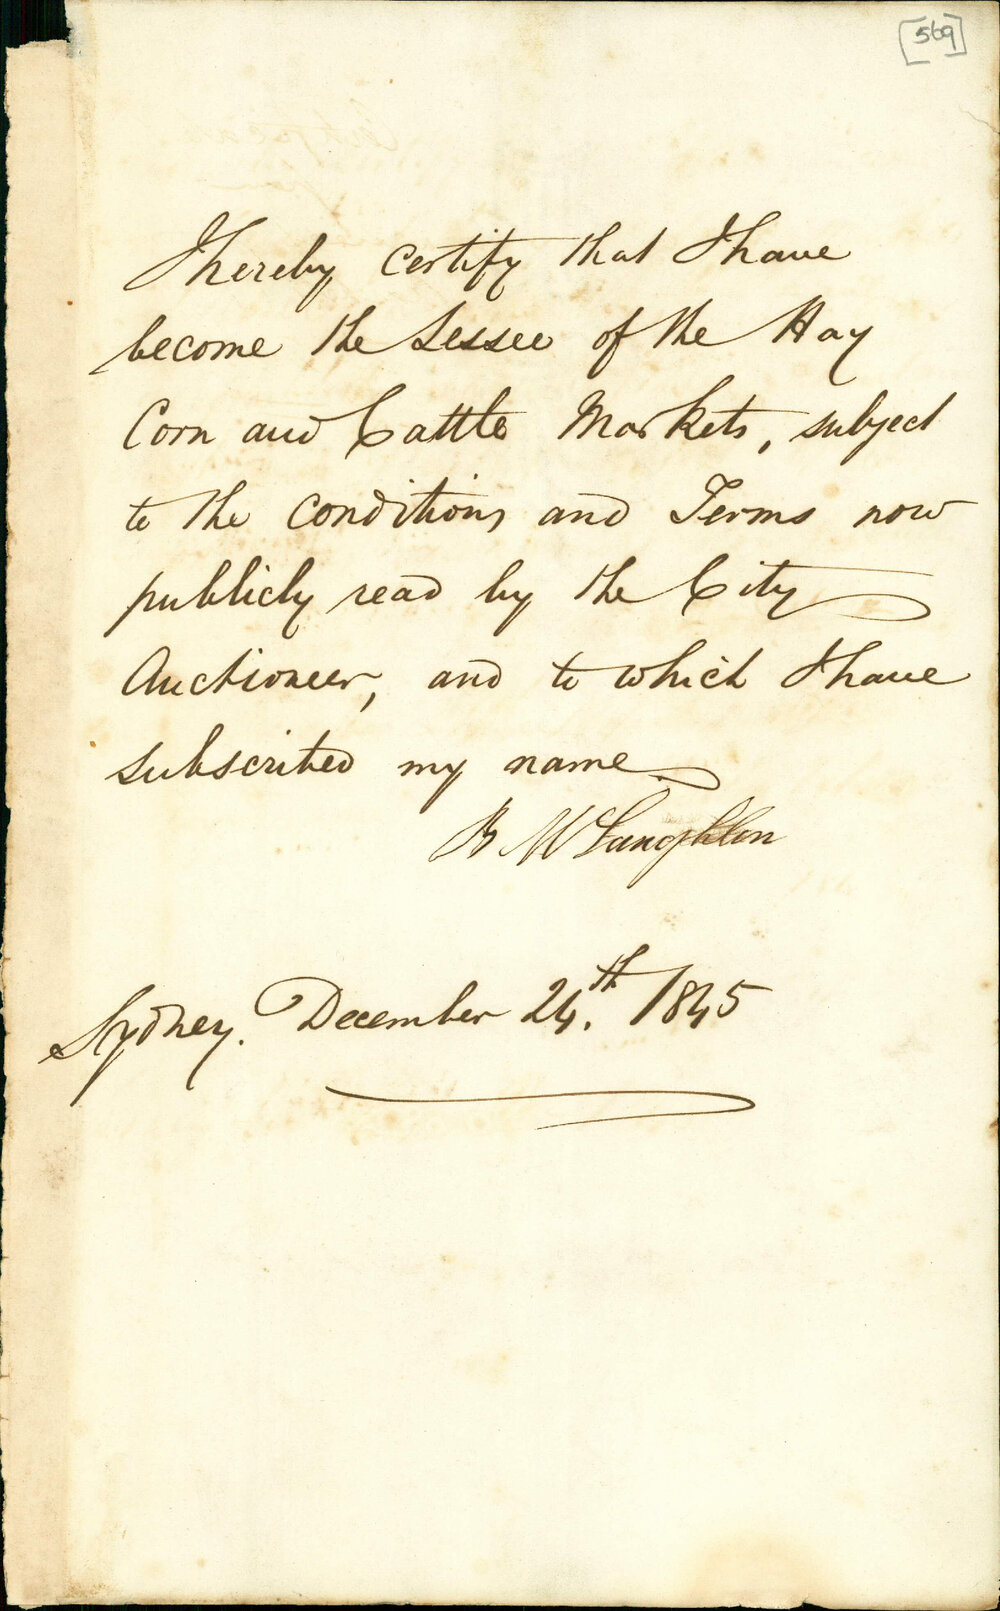 [569]
I hereby certify that I have
become the Lessee of the Hay
Corn and Cattle Markets, subject
to the conditions and Terms now
publicly read by the City
Auctioneer, and to which I have
subscribed my name
B McLaughlin
Sydney. December 24.th 1845